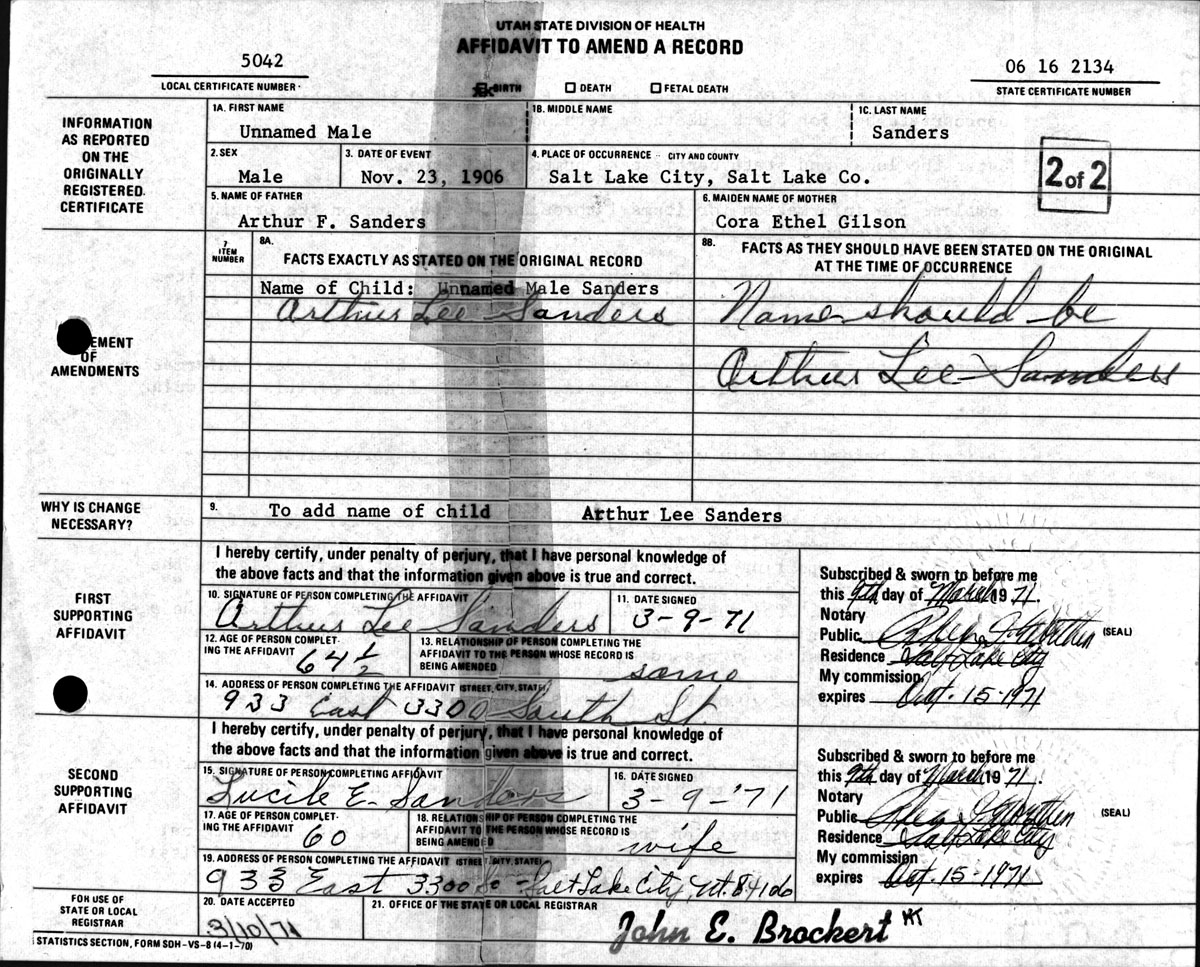 UTAH STATE DIVISION OF HEALTH
AFFIDAVIT TO AMEND A RECORD
5042
LOCAL CERTIFICATE NUMBER
BIRTH DEATH FETAL DEATH
06 16 2134
STATE CERTIFICATE NUMBER
INFORMATION
AS REPORTED
ON THE
ORIGINALLY
REGISTERED
CERTIFICATE
1A. FIRST NAME 1B. MIDDLE NAME 1C. LAST NAME
Unnamed Male Sanders
2. SEX 3. DATE OF EVENT 4. PLACE OF OCCURRENCE - CITY AND COUNTY
Male Nov. 23, 1906 Salt Lake City, Salt Lake Co.
2 of 2
5. NAME OF FATHER 6. MAIDEN NAME OF MOTHER
Arthur F. Sanders Cora Ethel Gilson
7 ITEM NUMBER
8A. FACTS EXACTLY AS STATED ON THE ORIGINAL RECORD
8B. FACTS AS THEY SHOULD HAVE BEEN STATED ON THE ORIGINAL
AT THE TIME OF OCCURRENCE
EMENT
OF
AMENDMENTS
Name of Child: Unnamed Male Sanders
Arthur Lee Sanders
Name should be
Arthur Lee Sanders
WHY IS CHANGE
NECESSARY?
9. To add name of child Arthur Lee Sanders
FIRST
SUPPORTING
AFFIDAVIT
I hereby certify, under penalty of perjury, that I have personal knowledge of
the above facts and that the information given above is true and correct.
10. SIGNATURE OF PERSON COMPLETING THE AFFIDAVIT 11. DATE SIGNED
Arthur Lee Sanders 3-9-71
12. AGE OF PERSON COMPLET-
ING THE AFFIDAVIT
64 1/2
13. RELATIONSHIP OF PERSON COMPLETING THE
AFFIDAVIT TO THE PERSON WHOSE RECORD IS
BEING AMENDED
same
14. ADDRESS OF PERSON COMPLETING THE AFFIDAVIT (STREET, CITY, STATE)
933 East 3300 South St.
Subscribed & sworn to before me
this 9th day of March 1971.
Notary
Public (SEAL)
Residence Salt Lake City
My commission
expires Oct. 15-1971
SECOND
SUPPORTING
AFFIDAVIT
I hereby certify, under penalty of perjury, that I have personal knowledge of
the above facts and that the information given above is true and correct.
15. SIGNATURE OF PERSON COMPLETING AFFIDAVIT 16. DATE SIGNED
Lucile E. Sanders 3-9-'71
17. AGE OF PERSON COMPLET-
ING THE AFFIDAVIT
60
18. RELATIONSHIP OF PERSON COMPLETING THE
AFFIDAVIT TO THE PERSON WHOSE RECORD IS
BEING AMENDED
wife
19. ADDRESS OF PERSON COMPLETING THE AFFIDAVIT (STREET, CITY, STATE)
933 East 3300 So - Salt Lake City, Ut. 84106
Subscribed & sworn to before me
this 9th day of March 1971.
Notary
Public (SEAL)
Residence Salt Lake City
My commission
expires Oct. 15-1971
FOR USE OF
STATE OR LOCAL
REGISTRAR
20. DATE ACCEPTED 21. OFFICE OF THE STATE OR LOCAL REGISTRAR
3/10/71 John E. Brockert
STATISTICS SECTION, FORM SDH-VS-8 (4-1-70)